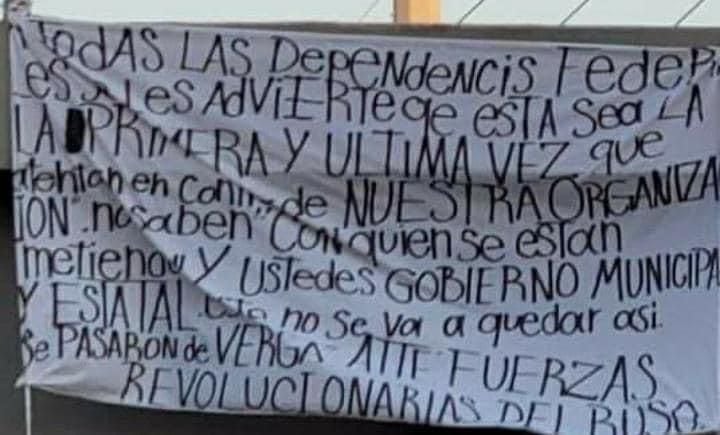 A TODAS LAS DepeNdeNCis FedeR
es se les AdViERTe qe esTA Sea LA
LA PRIMERA Y ULTIMA VEZ que
atentan en Contra de NUESTRA ORGANIZA
ION" no saben "Con quien se estan
metiendo y USTedes GOBIERNO MUNICIPA
Y ESTATAL esto no Se va a quedar asi.
Se PASARON de VERGA ATTE FUERZAS
REVOLUCIONARIAS DEL RUSO.